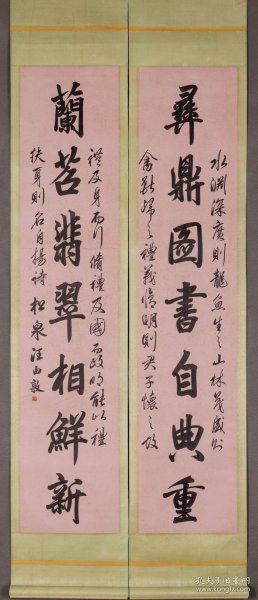 水淵深廣則龍魚生之山林茂盛則
彝鼎圖書自典重
禽獸歸之禮義脩明則君子懷之故
禮及身而行脩禮及國而政明能以禮
蘭苕翡翠相鮮新
扶身則名自揚詩 松泉汪由敦
孔夫子旧书网
www.kongfz.com